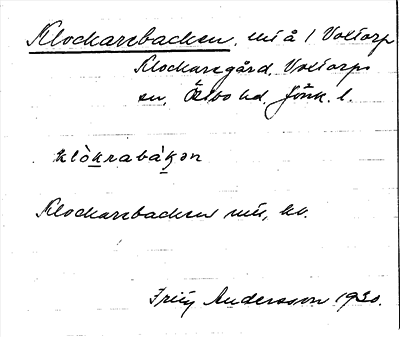 Klockarebacken, utå 1 Voltorp
Klockaregård, Voltorps
sn, Östbo hd. Jönk. l.
klò̀krabàkən
Klockarebacken utå, hv.
Fritz Andersson 1930.